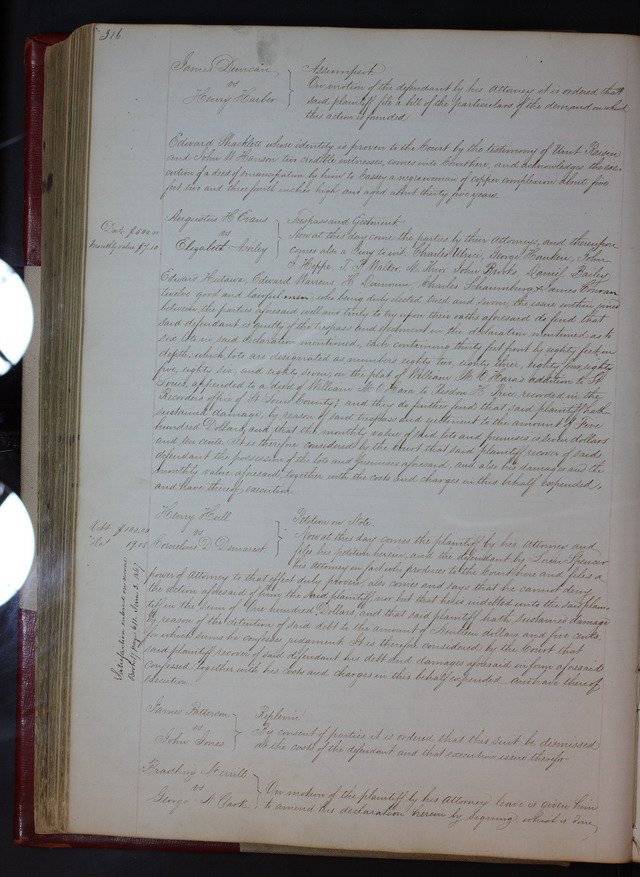 316
James Duncan
vs
Henry Harbor
Assumpsit
On motion of the defendant by his Attorney it is ordered that
said plaintiff file a bill of the particulars of the demand on which
this action is founded
Edward whose identity is proven to the Court by the testimony of
and John W Hanson two credible witnesses, comes into Court here, and acknowledges the exe-
cution of a deed of emancipation by him to Cassey a negro woman of copper complexion about five
feet two and three fourth inches high, and aged about thirty five years.
Augustus H. Evans
vs
Elizabeth
Dam. $500.00
Monthly value $7.10
Trespass and Ejectment
Now at this day come the parties by their Attorneys, and thereupon
comes also a Jury to wit, Charles Ulrice, George Hanken, John
J Hoppe, T. P. Walter, John Brooks, Daniel Bailey,
Edward Edward Warrens, H. Charles Schaumburg & James
twelve good and lawful men who being duly elected tried and sworn, the issue within joined
between the parties aforesaid well and truly to try upon their oaths aforesaid do find that
said defendant is guilty of the trespass and ejectment in the declaration mentioned as to
six lots in said declaration mentioned, each containing thirty feet front by eighty feet in
depth, which lots are designated as numbers eighty two, eighty three, eighty four, eighty
five, eighty six, and eighty seven, on the plat of William addition to St
Louis, appended to a deed of William to Risdon H. Price, recorded in the
Recorders office of St Louis County, and they do further find that said plaintiff hath
sustained damage, by reason of said trespass and ejectment to the amount of Five
hundred Dollars, and that the monthly value of said lots and premises is seven dollars
and ten cents. It is therefore considered by the Court that said plaintiff recover of said
defendant the possession of the lots and premises aforesaid, and also his damages and the
monthly value aforesaid, together with the costs and charges in this behalf expended,
and have thereof execution.
Henry Hull
vs
Cornelius D. Demarest
Debt $100.00
Da 19.05
Satisfaction entered on
Book 17 page
Petition on Note.
Now at this day comes the plaintiff by his Attorney and
files his petition herein, and the defendant by Spencer
his Attorney in fact who produces to the Court here and files a
power of Attorney to that effect duly proven, also comes and says that he cannot deny
the action aforesaid of him the said plaintiff nor but that he is indebted unto the said plain-
tiff in the Sum of One hundred Dollars, and that said plaintiff hath sustained damage
by reason of the detention of said debt to the amount of Nineteen dollars and five cents,
for which sums he confesses judgment. It is therefore considered by the Court that
said plaintiff recover of said defendant his debt and damages aforesaid in form aforesaid
confessed, together with his costs and charges in this behalf expended and have thereof
execution
James Patterson
vs
John Jones
Replevin
By consent of parties it is ordered that this suit be dismissed
at the costs of the defendant and that execution issue therefor
Merrill
vs
George A Clark
On motion of the plaintiff by his attorney leave is given him
to amend his declaration herein by signing, which is done,